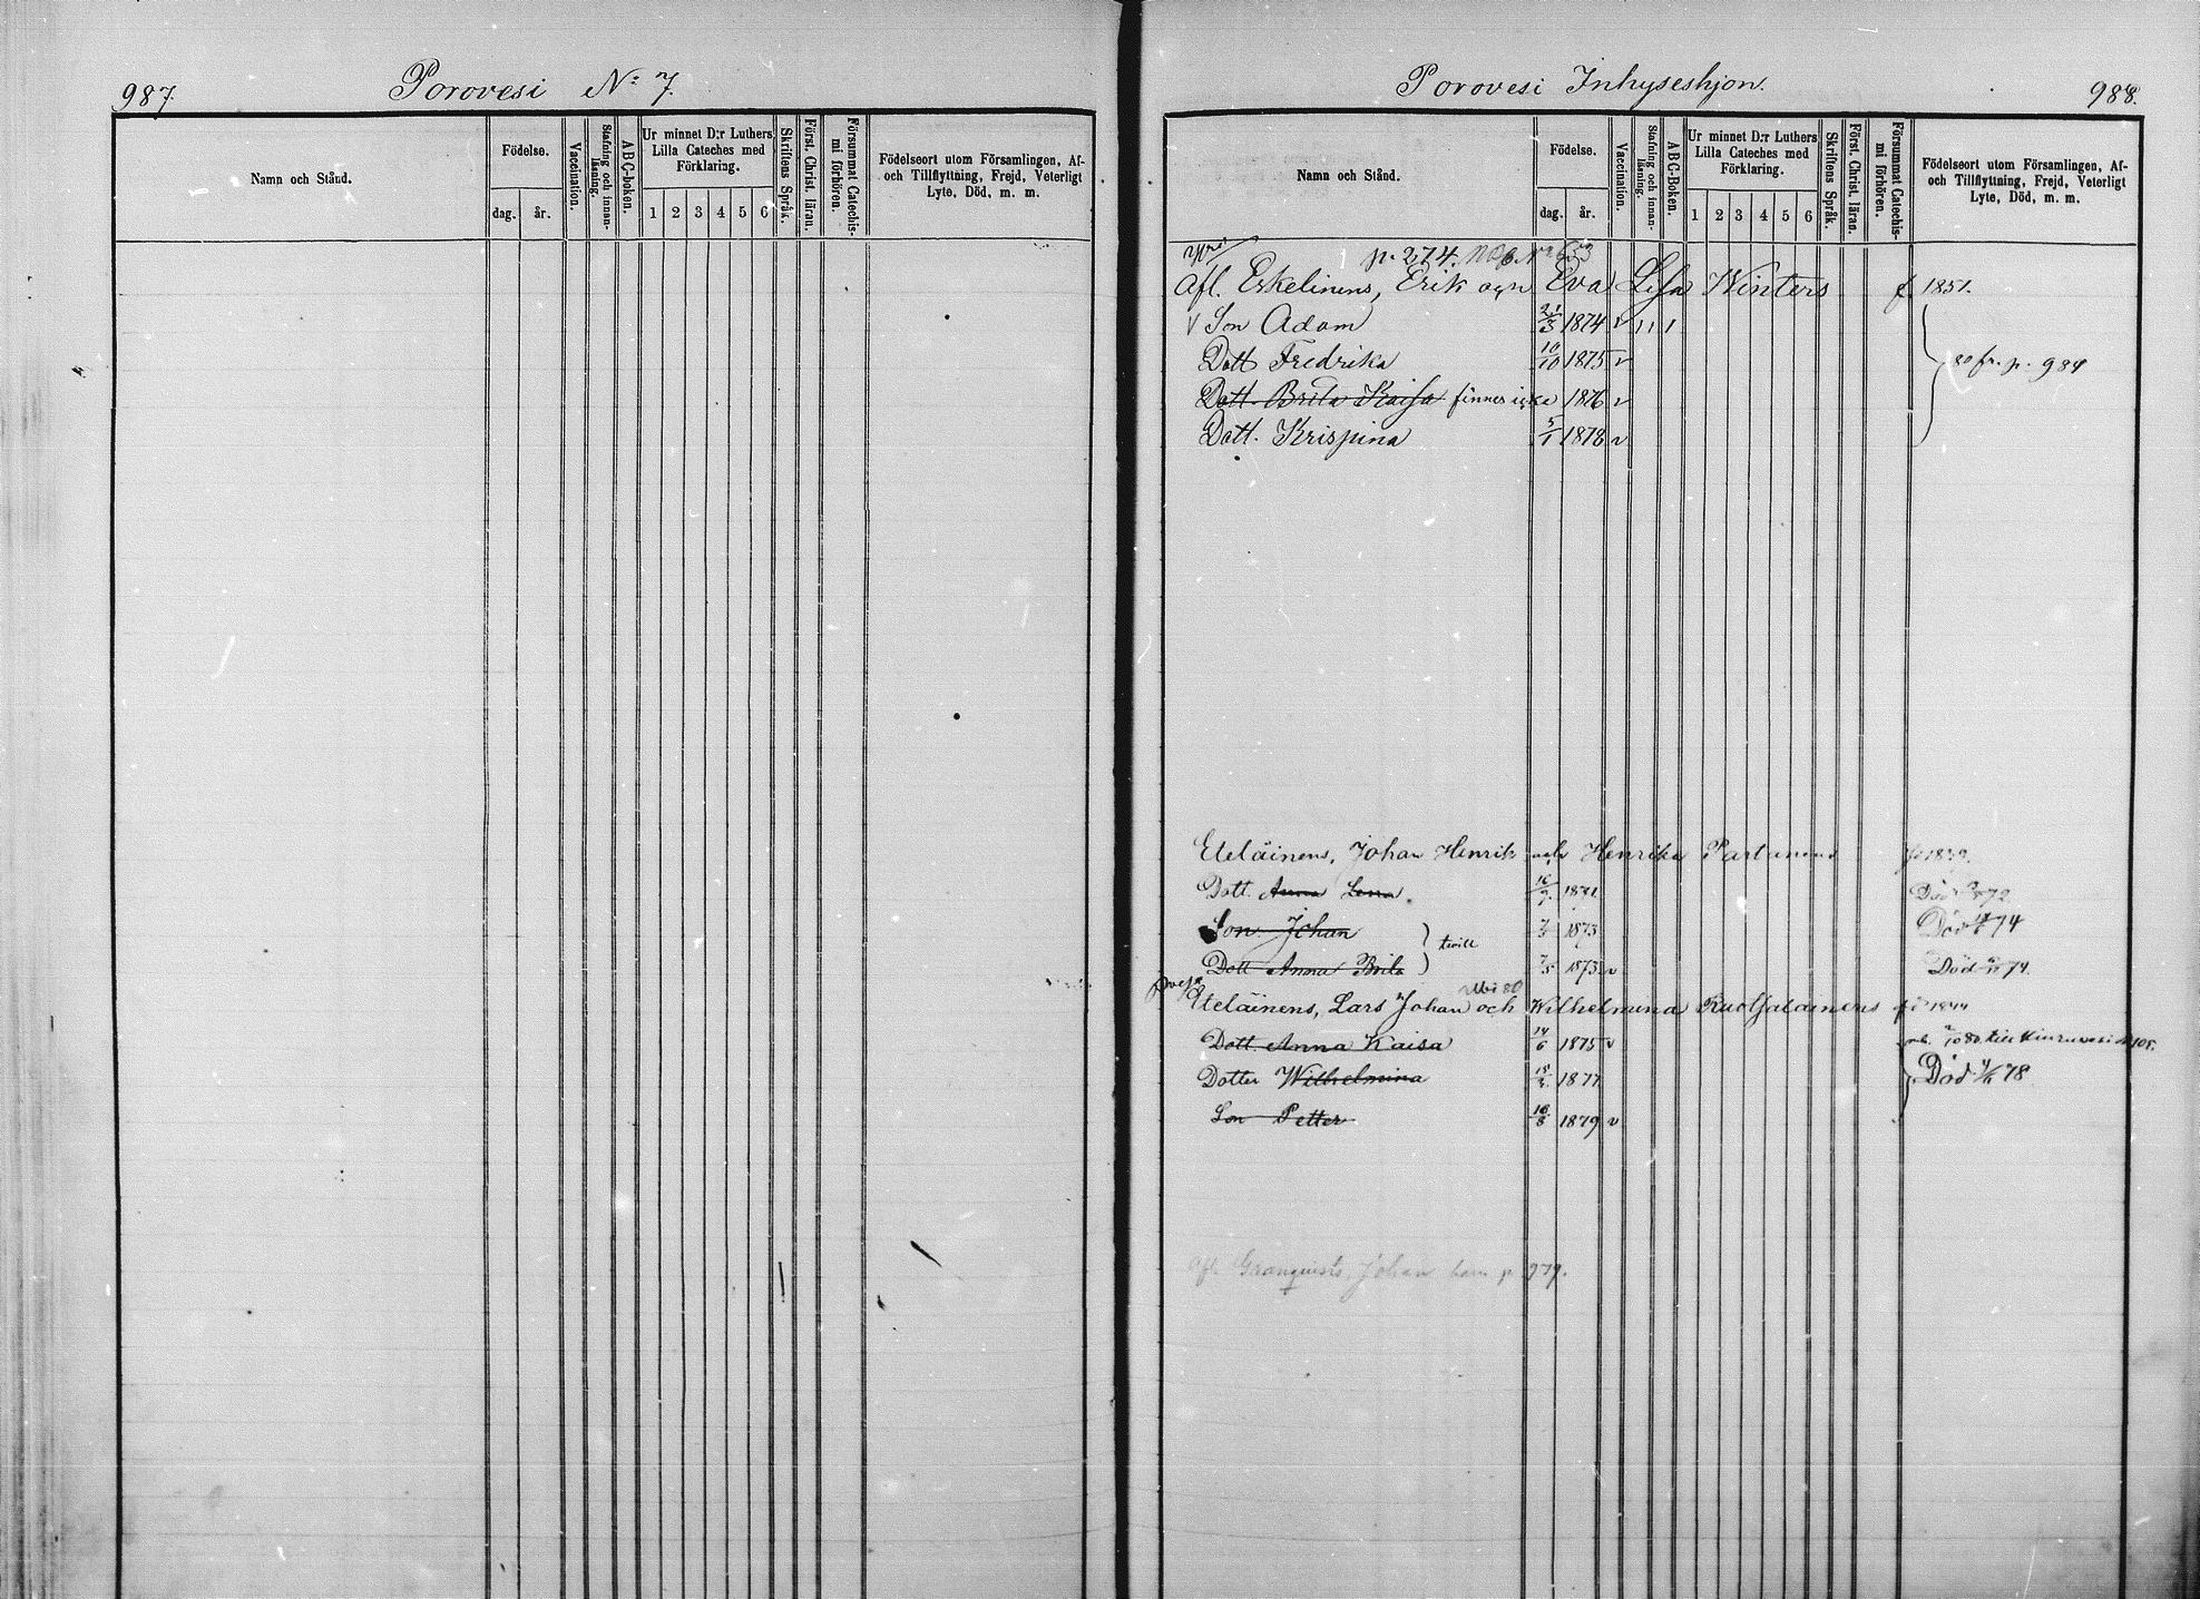 987.
Porovesi No 7.
Namn och Stånd.
Födelse.
dag.
år.
Vaccination.
Stafning och innan-
läsning.
ABC-boken.
Ur minnet D:r Luthers
Lilla Cateches med
Förklaring.
1 2 3 4 5 6
Skriftens Språk.
Först. Christ. läran.
Försummat Catechis-
mi förhören.
Födelseort utom Församlingen, Af-
och Tillflyttning, Frejd, Veterligt
Lyte, Död, m. m.
Porovesi Inhyseshjon.
988.
Namn och Stånd.
Födelse.
dag.
år.
Vaccination.
Stafning och innan-
läsning.
ABC-Boken.
Ur minnet D:r Luthers
Lilla Cateches med
Förklaring.
1 2 3 4 5 6
Skriftens Språk.
Först. Christ. läran.
Försummat Catechis-
mi förhören.
Födelseort utom Församlingen, Af-
och Tillflyttning, Frejd, Veterligt
Lyte, Död, m. m.
p. 274.
Afl. Eskelinens, Erik och Eva Lisa Winters f. 1851.
V Son Adam 21/3 1874 v
Dott Fredrika 10/10 1875 v 80 fr. p. 984
Dott. Brita Kaisa finnes icke 1876 v
Dott. Krispina 5/1 1878 v
Eteläinens, Johan Henrik och Henrika Partanens 1839.
Dott. Anna Lena 16/7 1871 Död 72
Son Johan 7/5 1873 Död 74
tvill
Dott Anna Brita 7/5 1873 v Död 74.
Eteläinens, Lars Johan och Wilhelmina Ruotsalainens 1844
Dott. Anna Kaisa 14/6 1875 v 80 till Kiuruvesi
Dotter Wilhelmina 18/3 1877 Död 78
Son Petter 18/8 1879 v
Afl. Granqvists, Johan barn p 979.